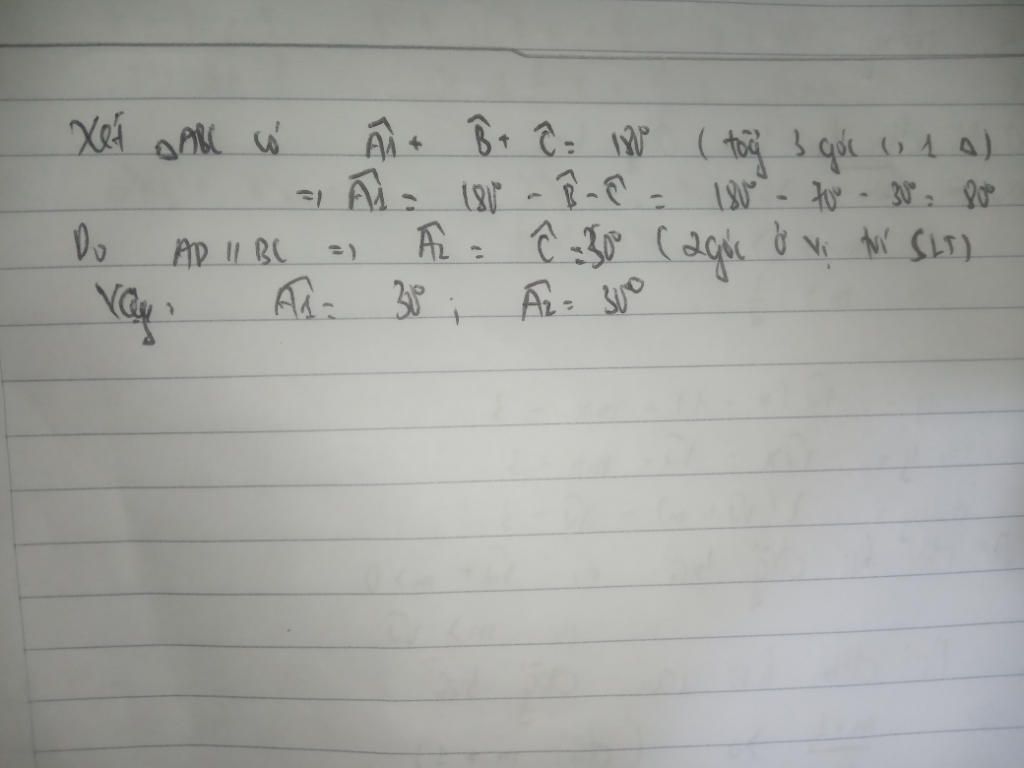 Xét △ABC có Â1 + B̂ + Ĉ = 180° ( tổg 3 góc củ 1 △)
=> Â1 = 180° - B̂ - Ĉ = 180° - 70° - 30° = 80°
Do AD // BC => Â2 = Ĉ = 30° ( 2 góc ở vị trí SLT)
Vậy, Â1 = 30° ; Â2 = 30°